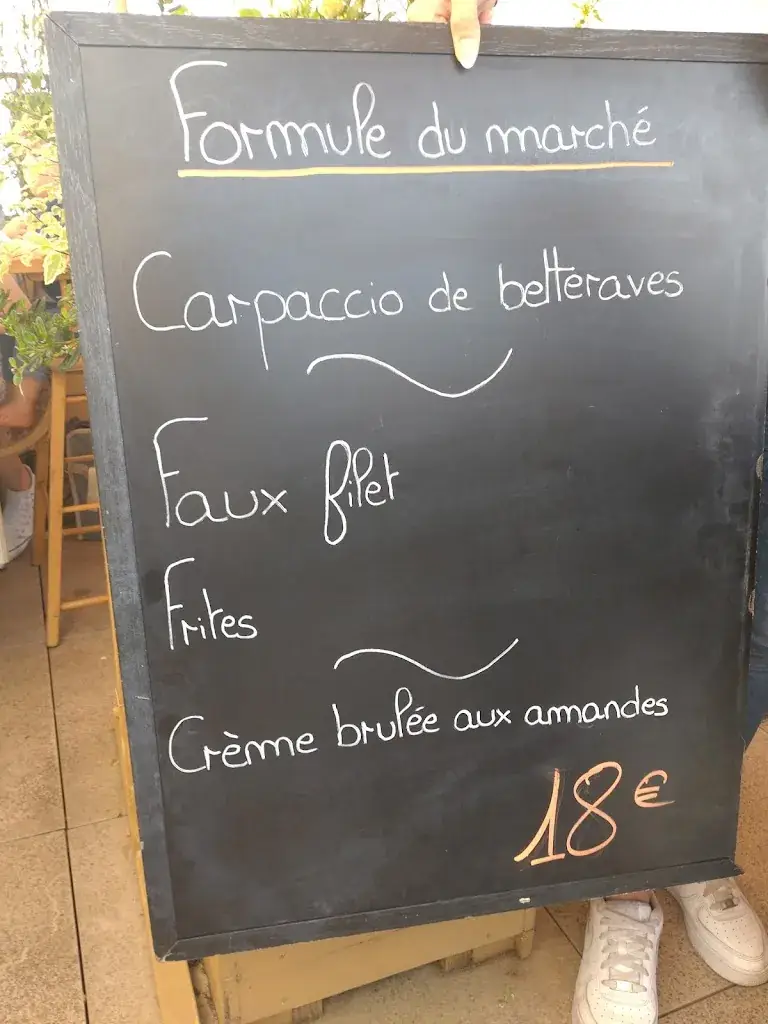 Formule du marché
Carpaccio de betteraves
Faux filet
Frites
Crème brulée aux amandes
18 €